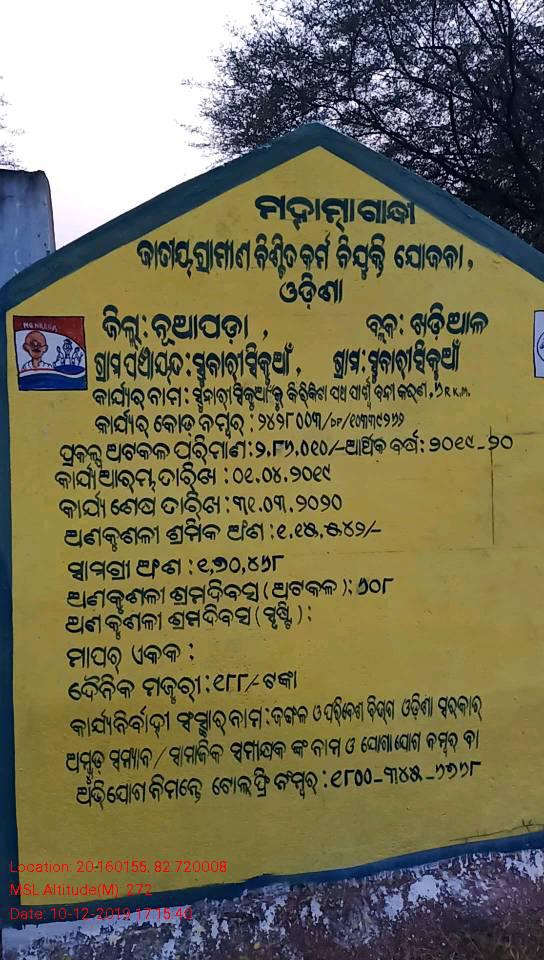 ମହାତ୍ମାଗାନ୍ଧୀ
ଜାତୀୟ ଗ୍ରାମୀଣ ନିଶ୍ଚିତ କର୍ମ ନିଯୁକ୍ତି ଯୋଜନା,
ଓଡ଼ିଶା
MGNREGA
ଜିଲ୍ଲା: ନୂଆପଡ଼ା, ବ୍ଲକ: ଖଡ଼ିଆଳ
ଗ୍ରାମପଞ୍ଚାୟତ: ସୁନାରୀସିକୁଆଁ, ଗ୍ରାମ: ସୁନାରୀସିକୁଆଁ
କାର୍ଯ୍ୟର ନାମ: ସୁନାରୀସିକୁଆଁ ରୁ ପଥ ପାର୍ଶ୍ୱ ବନୀ କରଣ,
କାର୍ଯ୍ୟର କୋଡ୍ ନମ୍ବର: ୨୪୨୮୦୦୩/DP/
ପ୍ରକଳ୍ପ ଅଟକଳ ପରିମାଣ: ୨,୮୬,୦୧୦/- ଆର୍ଥିକ ବର୍ଷ: ୨୦୧୯-୨୦
କାର୍ଯ୍ୟ ଆରମ୍ଭ ତାରିଖ: ୦୧.୦୪.୨୦୧୯
କାର୍ଯ୍ୟ ଶେଷ ତାରିଖ: ୩୧.୦୩.୨୦୨୦
ଅଣକୁଶଳୀ ଶ୍ରମିକ ଅଂଶ: ୧,୧୫,୫୪୨/-
ସାମଗ୍ରୀ ଅଂଶ: ୧,୭୦,୪୬୮
ଅଣକୁଶଳୀ ଶ୍ରମଦିବସ (ଅଟକଳ): ୬୦୮
ଅଣକୁଶଳୀ ଶ୍ରମଦିବସ (ସୃଷ୍ଟି):
ମାପର ଏକକ:
ଦୈନିକ ମଜୁରୀ: ୧୮୮/- ଟଙ୍କା
କାର୍ଯ୍ୟନିର୍ବାହୀ ସଂସ୍ଥାର ନାମ: ଜଙ୍ଗଲ ଓ ପରିବେଶ ବିଭାଗ ଓଡ଼ିଶା ସରକାର
ସାମାଜିକ ସମୀକ୍ଷକ ଙ୍କ ନାମ ଓ ଯୋଗାଯୋଗ ନମ୍ବର ବା
ଅଭିଯୋଗ ନିମନ୍ତେ ଟୋଲ୍ ଫ୍ରି ନଂମ୍ବର: ୧୮୦୦-୩୪୫-୬୭୬୮
Location: 20.160155, 82.720008
MSL Altitude(M): 272
Date: 10-12-2019 17:15:40